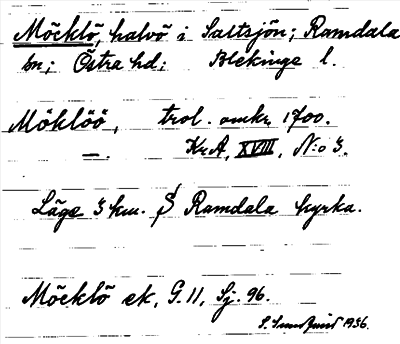 Möcklö, halvö i Saltsjön; Ramdala
sn; Östra hd; Blekinge l.
Möklöö, trol. omkr. 1700.
—. KrA, XVIII, N:o 3.
Läge 3 km. S Ramdala kyrka.
Möcklö ek, G. 11, Sj. 96.
S. 1936.